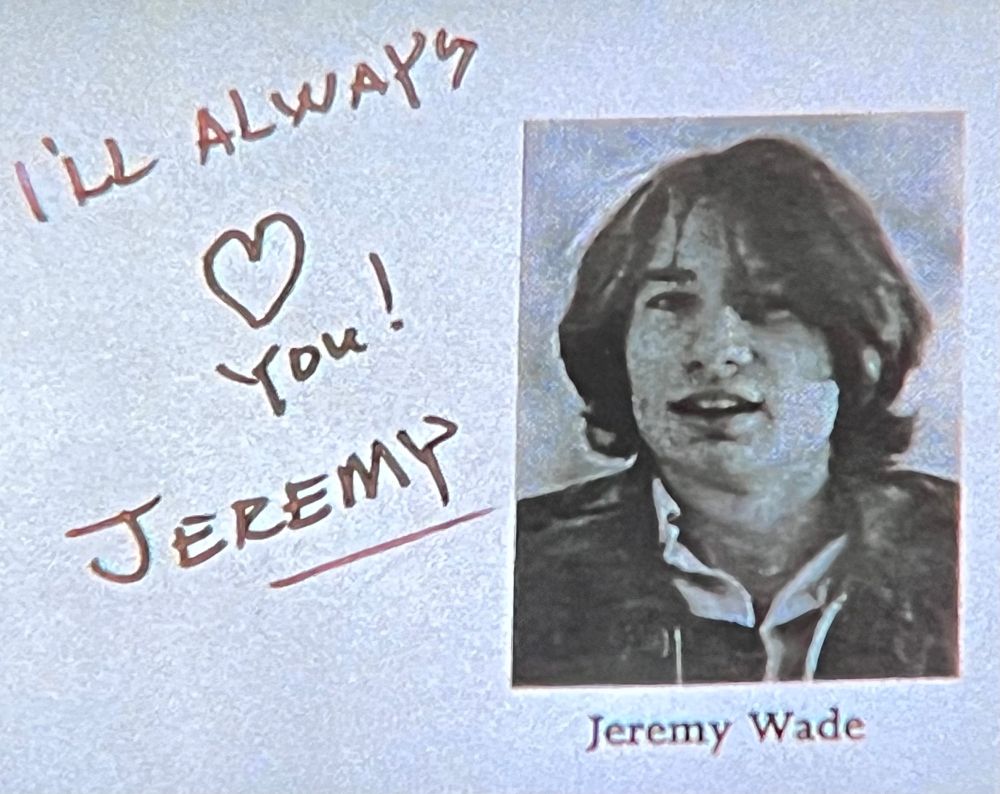 I'LL ALWAYS
♡
YOU!
JEREMY
Jeremy Wade